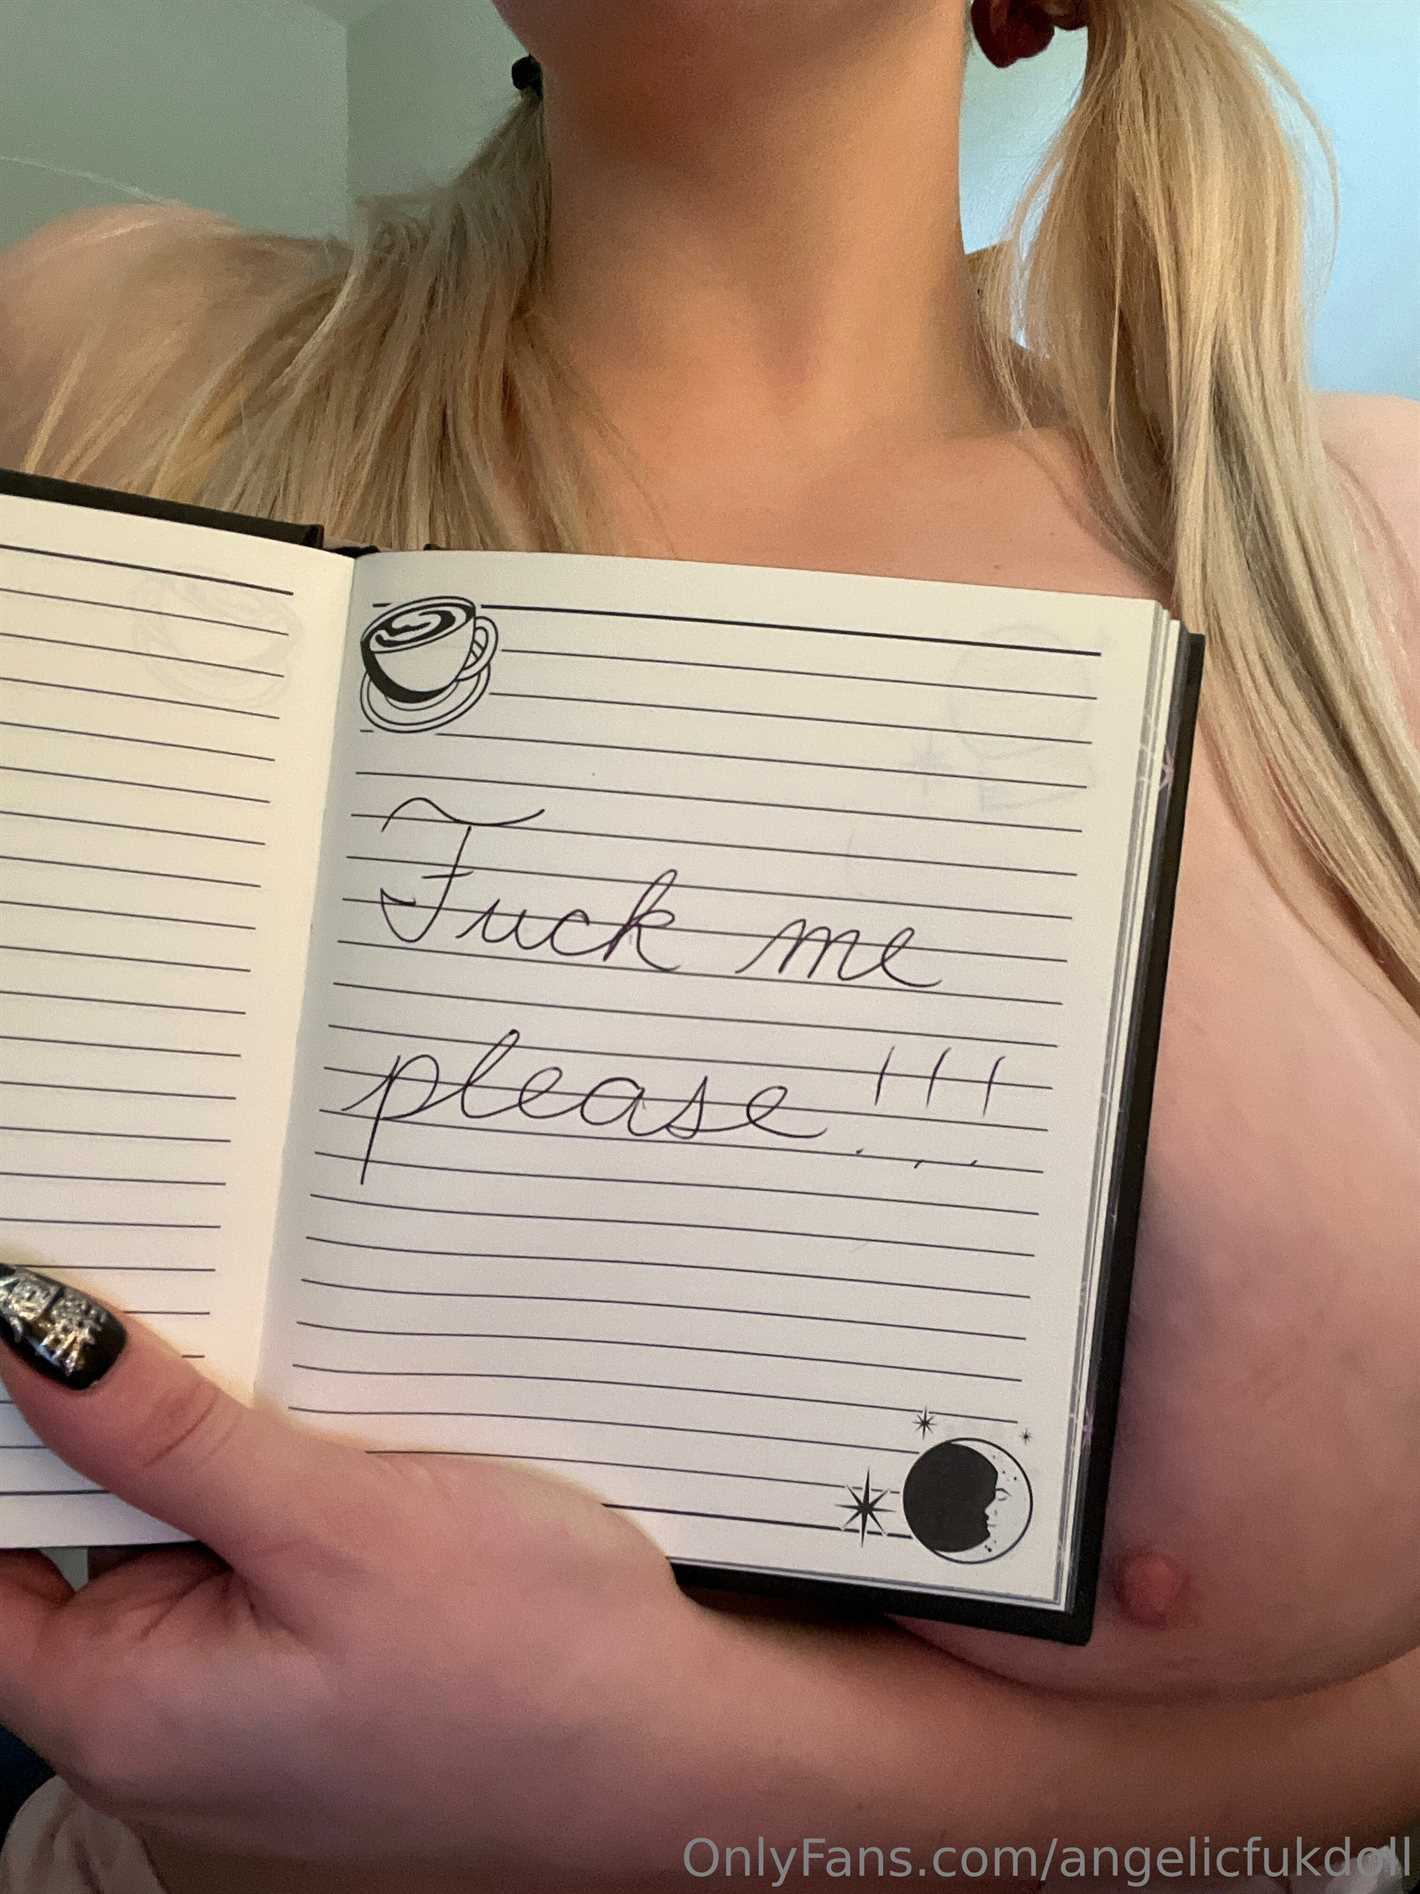 Fuck me
please!!!
OnlyFans.com/angelicfukdoll